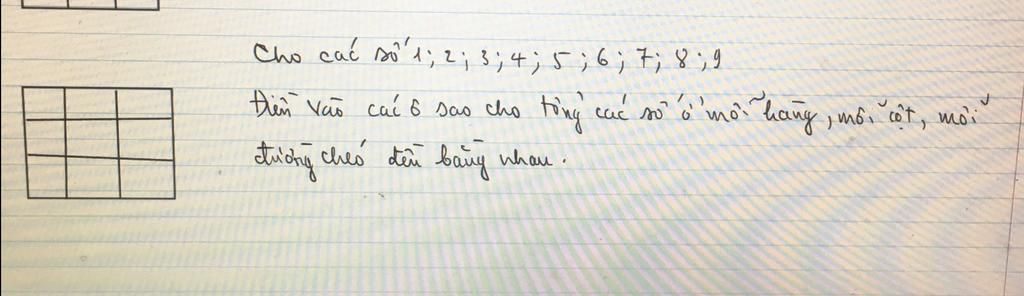 Cho các số 1; 2; 3; 4; 5; 6; 7; 8; 9
Điền vào các ô sao cho tổng các số ở mỗi hàng, mỗi cột, mỗi
đường chéo đều bằng nhau.